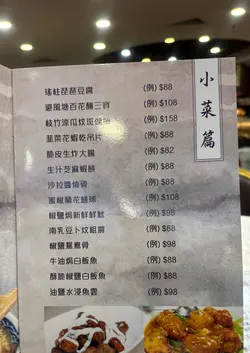 小菜篇
瑤柱琵琶豆腐 (例) $88
避風塘百花釀三寶 (例) $108
枝竹涼瓜炆斑 (例) $158
韮菜花蝦乾吊片 (例) $88
脆皮生炸大腸 (例) $82
生汁芝麻蝦 (例) $88
沙拉醬燒骨 (例) $88
蜜椒蘭花腰球 (例) $108
椒鹽焗新鮮魷 (例) $98
南乳豆卜炆粗齋 (例) $88
椒鹽鴛鴦骨 (例) $98
牛油焗白飯魚 (例) $88
酥脆椒鹽白飯魚 (例) $88
油鹽水浸魚雲 (例) $98